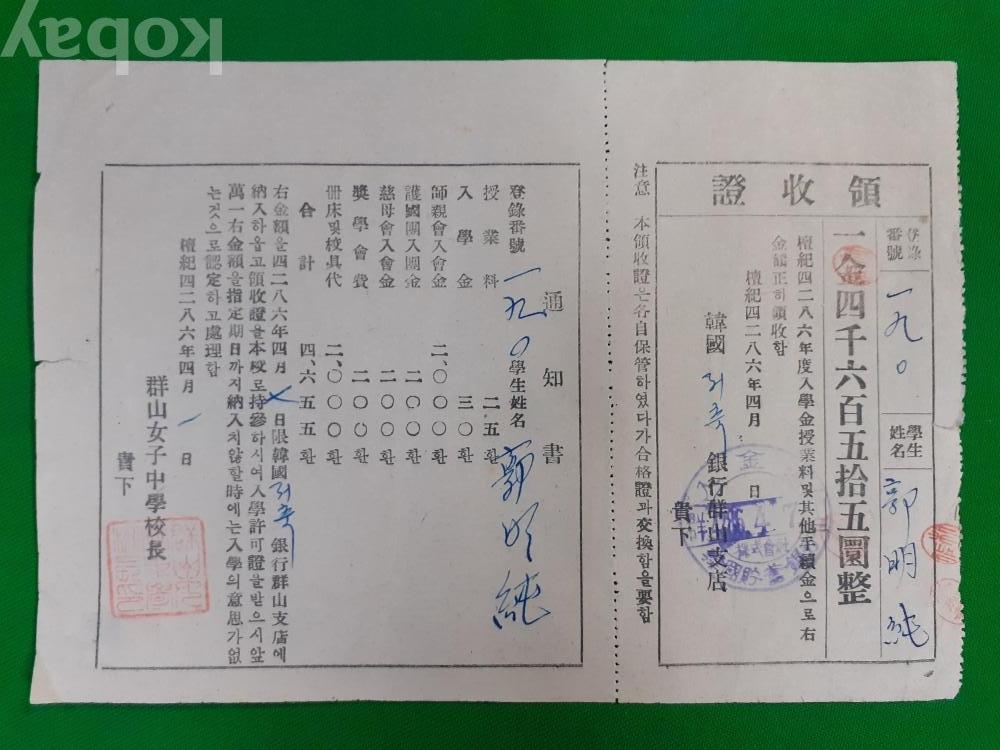 kobay
領收證
登錄番號 一九〇 學生姓名 郭明純
一金四千六百五拾五圜整
檀紀四二八六年度入學金授業料및其他手續金으로右
金額正히領收함
檀紀四二八六年四月 日
韓國 저축 銀行群山支店
貴下
注意 本領收證은各自保管하였다가合格證과交換함을要함
通知書
登錄番號 一九〇 學生姓名 郭明純
授業料 二五환
入學金 三〇환
師親會入會金 二、〇〇〇환
護國團入團金 二〇〇환
慈母會入會金 二〇〇환
獎學會費 二〇〇환
冊床및校具代 二、〇〇〇환
合計 四、六五五환
右金額을四二八六年四月 七日限韓國 저축 銀行群山支店에
納入하옵고領收證을本校로持參하시여入學許可證을받으시앞
萬一右金額을指定期日까지納入치않할時에는入學의意思가없
는것으로認定하고處理함
檀紀四二八六年四月 日
群山女子中學校長
貴下